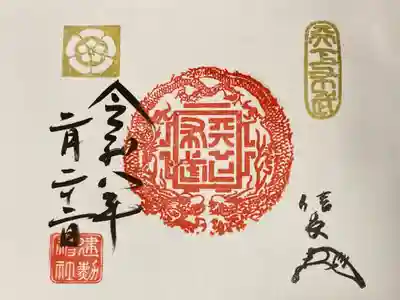 天下布武
信長
天下布武
令和八年
二月二十二日
建勲神社